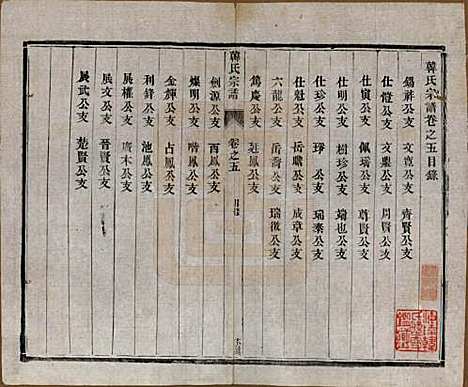 韓氏宗譜卷之五目錄
錫祥公支　文寬公支　齊賢公支
仕愷公支　文藻公支　周賢公支
仕寅公支　佩瑞公支　尊賢公支
仕明公支　樹珍公支　瑞也公支
仕珍公支　瑞泰公支
仕魁公支　岳驥公支　成章公支
六龍公支　岳壽公支　瑞徵公支
篤慶公支　廷鳳公支
韓氏宗譜
卷之五
目錄
劍源公支　西鳳公支
燦明公支　鳴鳳公支
金輝公支　占鳳公支
利鋒公支　池鳳公支
展權公支　廣木公支
展文公支　晉賢公支
展武公支　楚賢公支